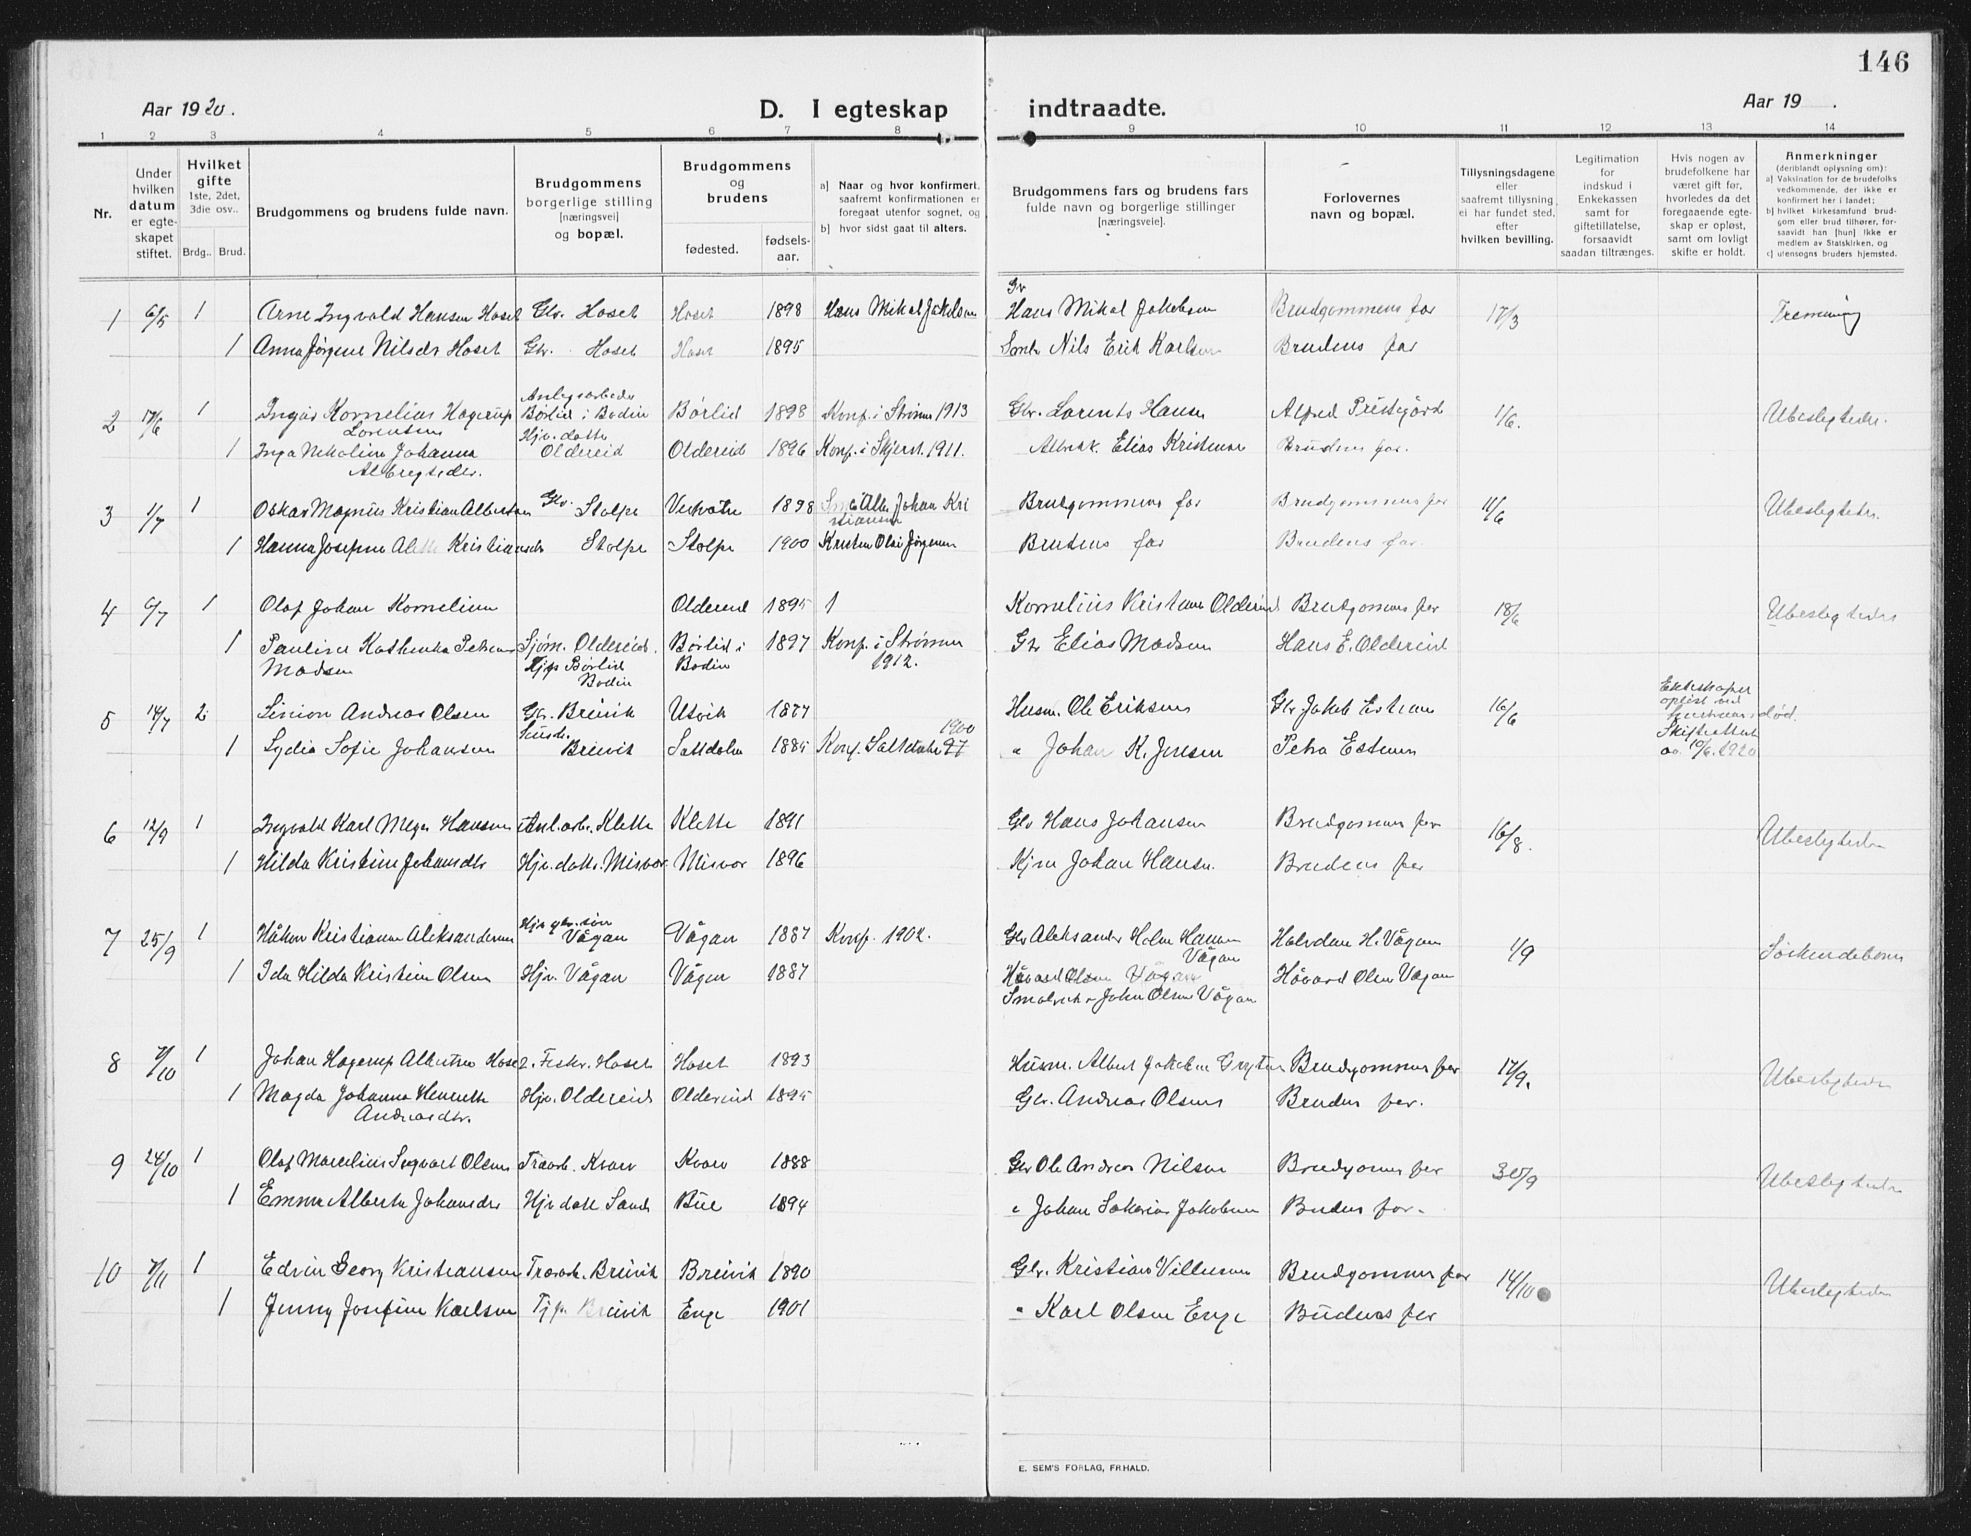 146
Aar 1920.
D. I egteskap indtraadte.
Aar 19 .
1 2 3 4 5 6 7 8 9 10 11 12 13 14
Nr.
Under hvilken datum er egteskapet stiftet.
Hvilket gifte 1ste, 2det, 3die osv..
Brdg.. Brud.
Brudgommens og brudens fulde navn.
Brudgommens borgerlige stilling [næringsvei] og bopæl.
Brudgommens og brudens
fødested.
fødselsaar.
a) Naar og hvor konfirmert, saafremt konfirmationen er foregaat utenfor sognet, og
b) hvor sidst gaat til alters.
Brudgommens fars og brudens fars fulde navn og borgerlige stillinger [næringsveie].
Forlovernes navn og bopæl.
Tillysningsdagene eller saafremt tillysning ei har fundet sted, efter hvilken bevilling.
Legitimation for indskud i Enkekassen samt for giftetillatelse, forsaavidt saadan tiltrænges.
Hvis nogen av brudefolkene har været gift før, hvorledes da det foregaaende egteskap er opløst, samt om lovligt skifte er holdt.
Anmerkninger (deriblandt oplysning om):
a) Vaksination for de brudefolks vedkommende, der ikke er konfirmert her i landet;
b) hvilket kirkesamfund brudgom eller brud tilhører, forsaavidt han [hun] ikke er medlem av Statskirken, og
c) utensogns bruders hjemsted.
1 6/5 1 Arne Ingvald Hansen Hoset Gbr. Hoset Hoset 1898 Hans Mikal Jakobsen Gbr Hans Mikal Jakobsen Brudgommens far 17/3 Tremening
1 Anna Jørgine Nilsdr Hoset Hoset Hoset 1895 Smbr Nils Erik Karlsen Brudens far
2 17/6 1 Ingvar Kornelius Hagerup Lorentsen Anlegsarbeider Børlid i Bodin Børlid 1898 Konf. i Strømen 1913 Gbr. Lorents Hansen Alfred Prestegård 1/6. Ubeslegtede.
1 Inga Nikoline Johanna Albregtsdr. Hjv. datter Oldereid Oldereid 1896 Konf. i Skjerst. 1911. Elias Kristensen Brudens far.
3 1/7 1 Oskar Magnus Kristian Albertsen Gbr. Stolpe 1898 Johan Kristiansen Brudgommens far Brudgommens far 11/6 Ubeslegtede.
1 Hanna Josefine Kristiansdr Stolpe Stolpe 1900 Kristen Olai Jørgensen Brudens far Brudens far.
4 6/7 1 Olaf Johan Kornelius Oldereid 1895 1 Kornelius Kristian Oldereid Brudgommens far 18/6 Ubeslegtede
1 Pauline Kathinka Petrine Madsen Sjøm. Oldereid. Hjp Børlid Bodin Børlid i Bodin 1897 Konf. i Strømen 1912. Gbr Elias Madsen Hans E. Oldereid
5 14/7 2 Simon Andreas Olsen Gbr. Breivik Utvik 1877 Husm. Ole Eriksen Gbr Jakob 16/6 Ekteskapet opløst ved hustruens død. Skifteattest av 10/6 1920
1 Lydia Sofie Johansen Breivik Saltdalen 1885 Konf. Saltdalen 1900 " Johan K. Jensen Petra
6 12/9 1 Ingvald Karl Meyer Hansen Anl.arb. Klette Klette 1891 Gbr Hans Johansen Brudgommens far 16/8. Ubeslegtede
1 Hilda Kristine Johansdtr Hjv. datter. Misvær Misvær 1896 Johan Hansen. Brudens far
7 25/9 1 Håkon Kristiann Aleksandersen Hjv gbr. søn Vågan Vågan 1887 Konf. 1902. Gbr Aleksander Holm Hansen Vågan Halvdan H. Vågan 1/9 Søskendebarn
1 Ida Hilda Kristine Olsen Hjv. Vågan Vågan 1887 Håvard Olsen Vågan John Olsen Vågan Håvard Olsen Vågan
8 7/10 1 Johan Hagerup Albertsen Hoset Fisker. Hoset Hoset 1893 Husm. Albert Jakobsen Brudgommens far 17/9. Ubeslegtede
1 Magda Johanna Henrette Andreasdtr. Hjv. Oldereid Oldereid 1895 Gbr. Andreas Olsen Brudens far.
9 24/10 1 Olaf Marcelius Sigvart Olsen Kvæv Kvæv 1888 Gbr Ole Andreas Nilsen Brudgommens far 30/9 Ubeslegtede
1 Emma Alberta Johansdtr Hjv datter Sand Bue 1894 " Johan Sakarias Jakobsen Brudens far.
10 7/11 1 Edvin Georg Kristiansen Breivik Breivik 1890 Gbr. Kristian Villumsen Brudgommens far 14/10 Ubeslegtede
1 Jenny Josefine Karlsen Tjp. Breivik Enge 1901 " Karl Olsen Enge Brudens far
E. SEM'S FORLAG, FR.HALD.